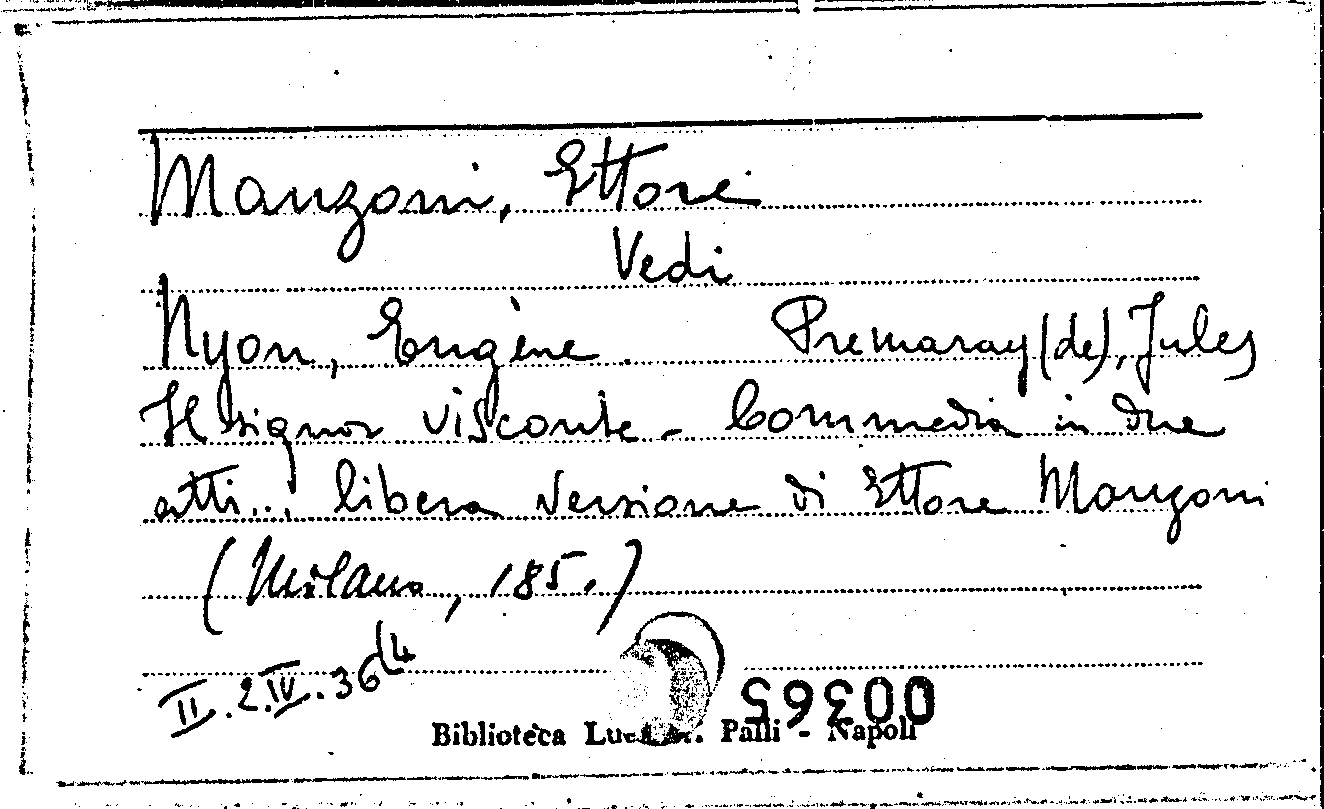 Manzoni, Ettore
Vedi
Nyon, Eugène. Premaray (de), Jules
Il signor visconte - Commedia in due
atti... libera versione di Ettore Manzoni
(Milano, 185.)
II. 2.IV. 36 14
00365
Biblioteca Palli - Napoli